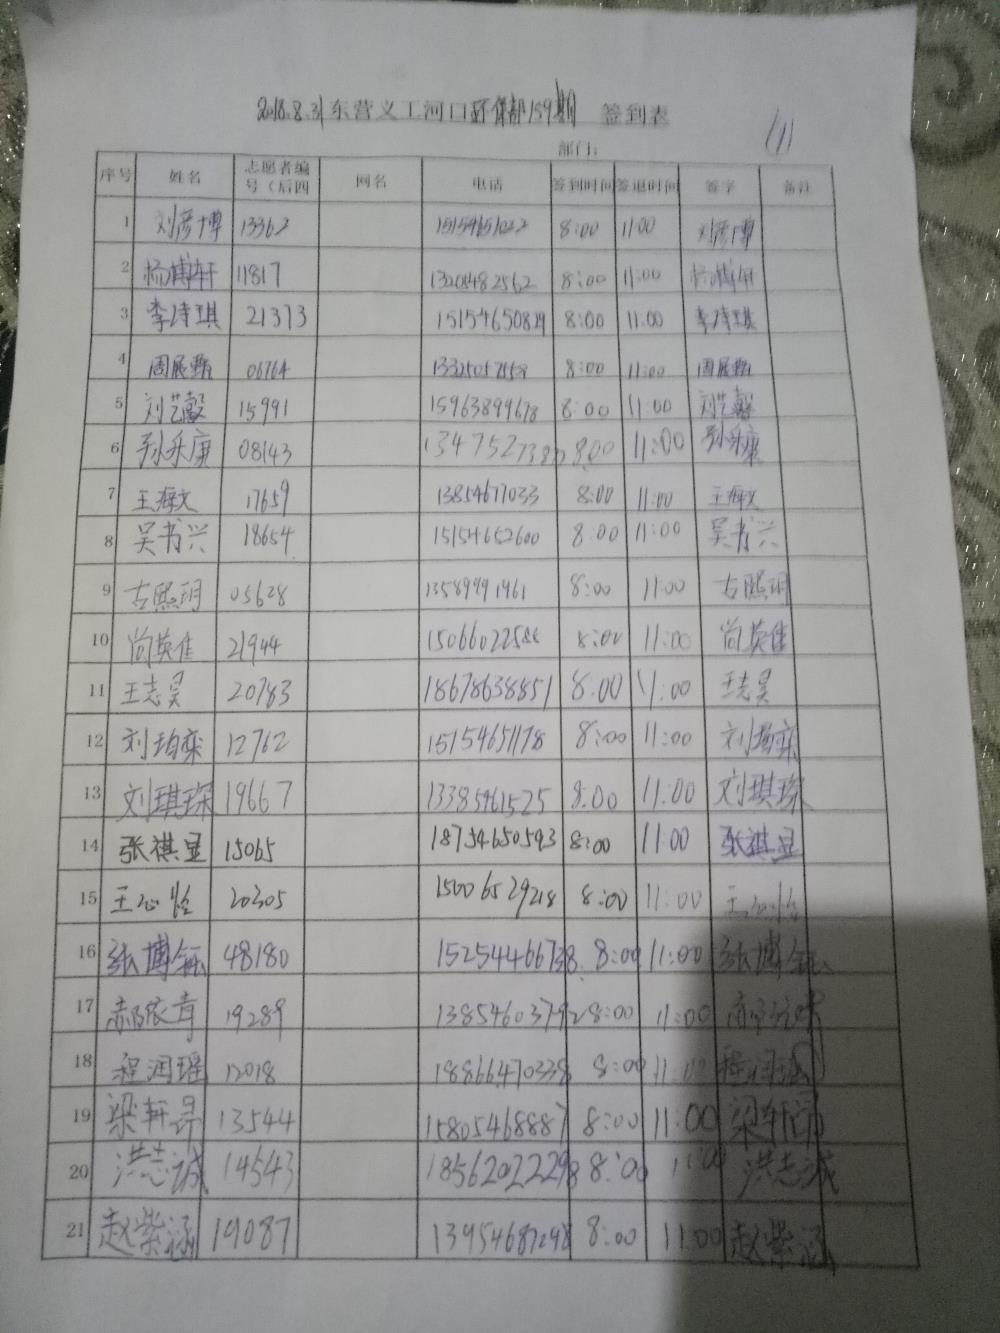 2018.8.31东营义工河口环保部159期 签到表
(1)
部门:
序号 姓名 志愿者编号（后四 网名 电话 签到时间 签退时间 签字 备注
1 刘彦博 13362 15154651022 8:00 11:00 刘彦博
2 杨博轩 11817 13204482562 8:00 11:00 杨博轩
3 李诗琪 21373 15154650829 8:00 11:00 李诗琪
4 周展甄 06764 8:00 11:00 周展甄
5 刘艺馨 15991 15963899678 8:00 11:00 刘艺馨
6 孙乐康 08143 8:00 11:00 孙乐康
7 王海文 17659 13854677033 8:00 11:00 王海文
8 吴书兴 18654 15154652600 8:00 11:00 吴书兴
9 古熙玥 05628 13589991961 8:00 11:00 古熙玥
10 尚英佳 21944 8:00 11:00 尚英佳
11 王志昊 20783 18678638851 8:00 11:00 王志昊
12 刘珀栾 12762 15154651178 8:00 11:00 刘珀栾
13 刘琪琛 19667 13385461525 8:00 11:00 刘琪琛
14 张祺显 15065 18754650593 8:00 11:00 张祺显
15 王心怡 20305 15006529218 8:00 11:00 王心怡
16 张博钰 48180 15254466738 8:00 11:00 张博钰
17 郝依茸 19289 13854603792 8:00 11:00
18 程润瑶 12018 18866470338 8:00 11:00 程润瑶
19 梁轩昂 13544 15805468887 8:00 11:00 梁轩昂
20 洪志诚 14543 18562022298 8:00 11:00 洪志诚
21 赵紫涵 19087 13954687298 8:00 11:00 赵紫涵